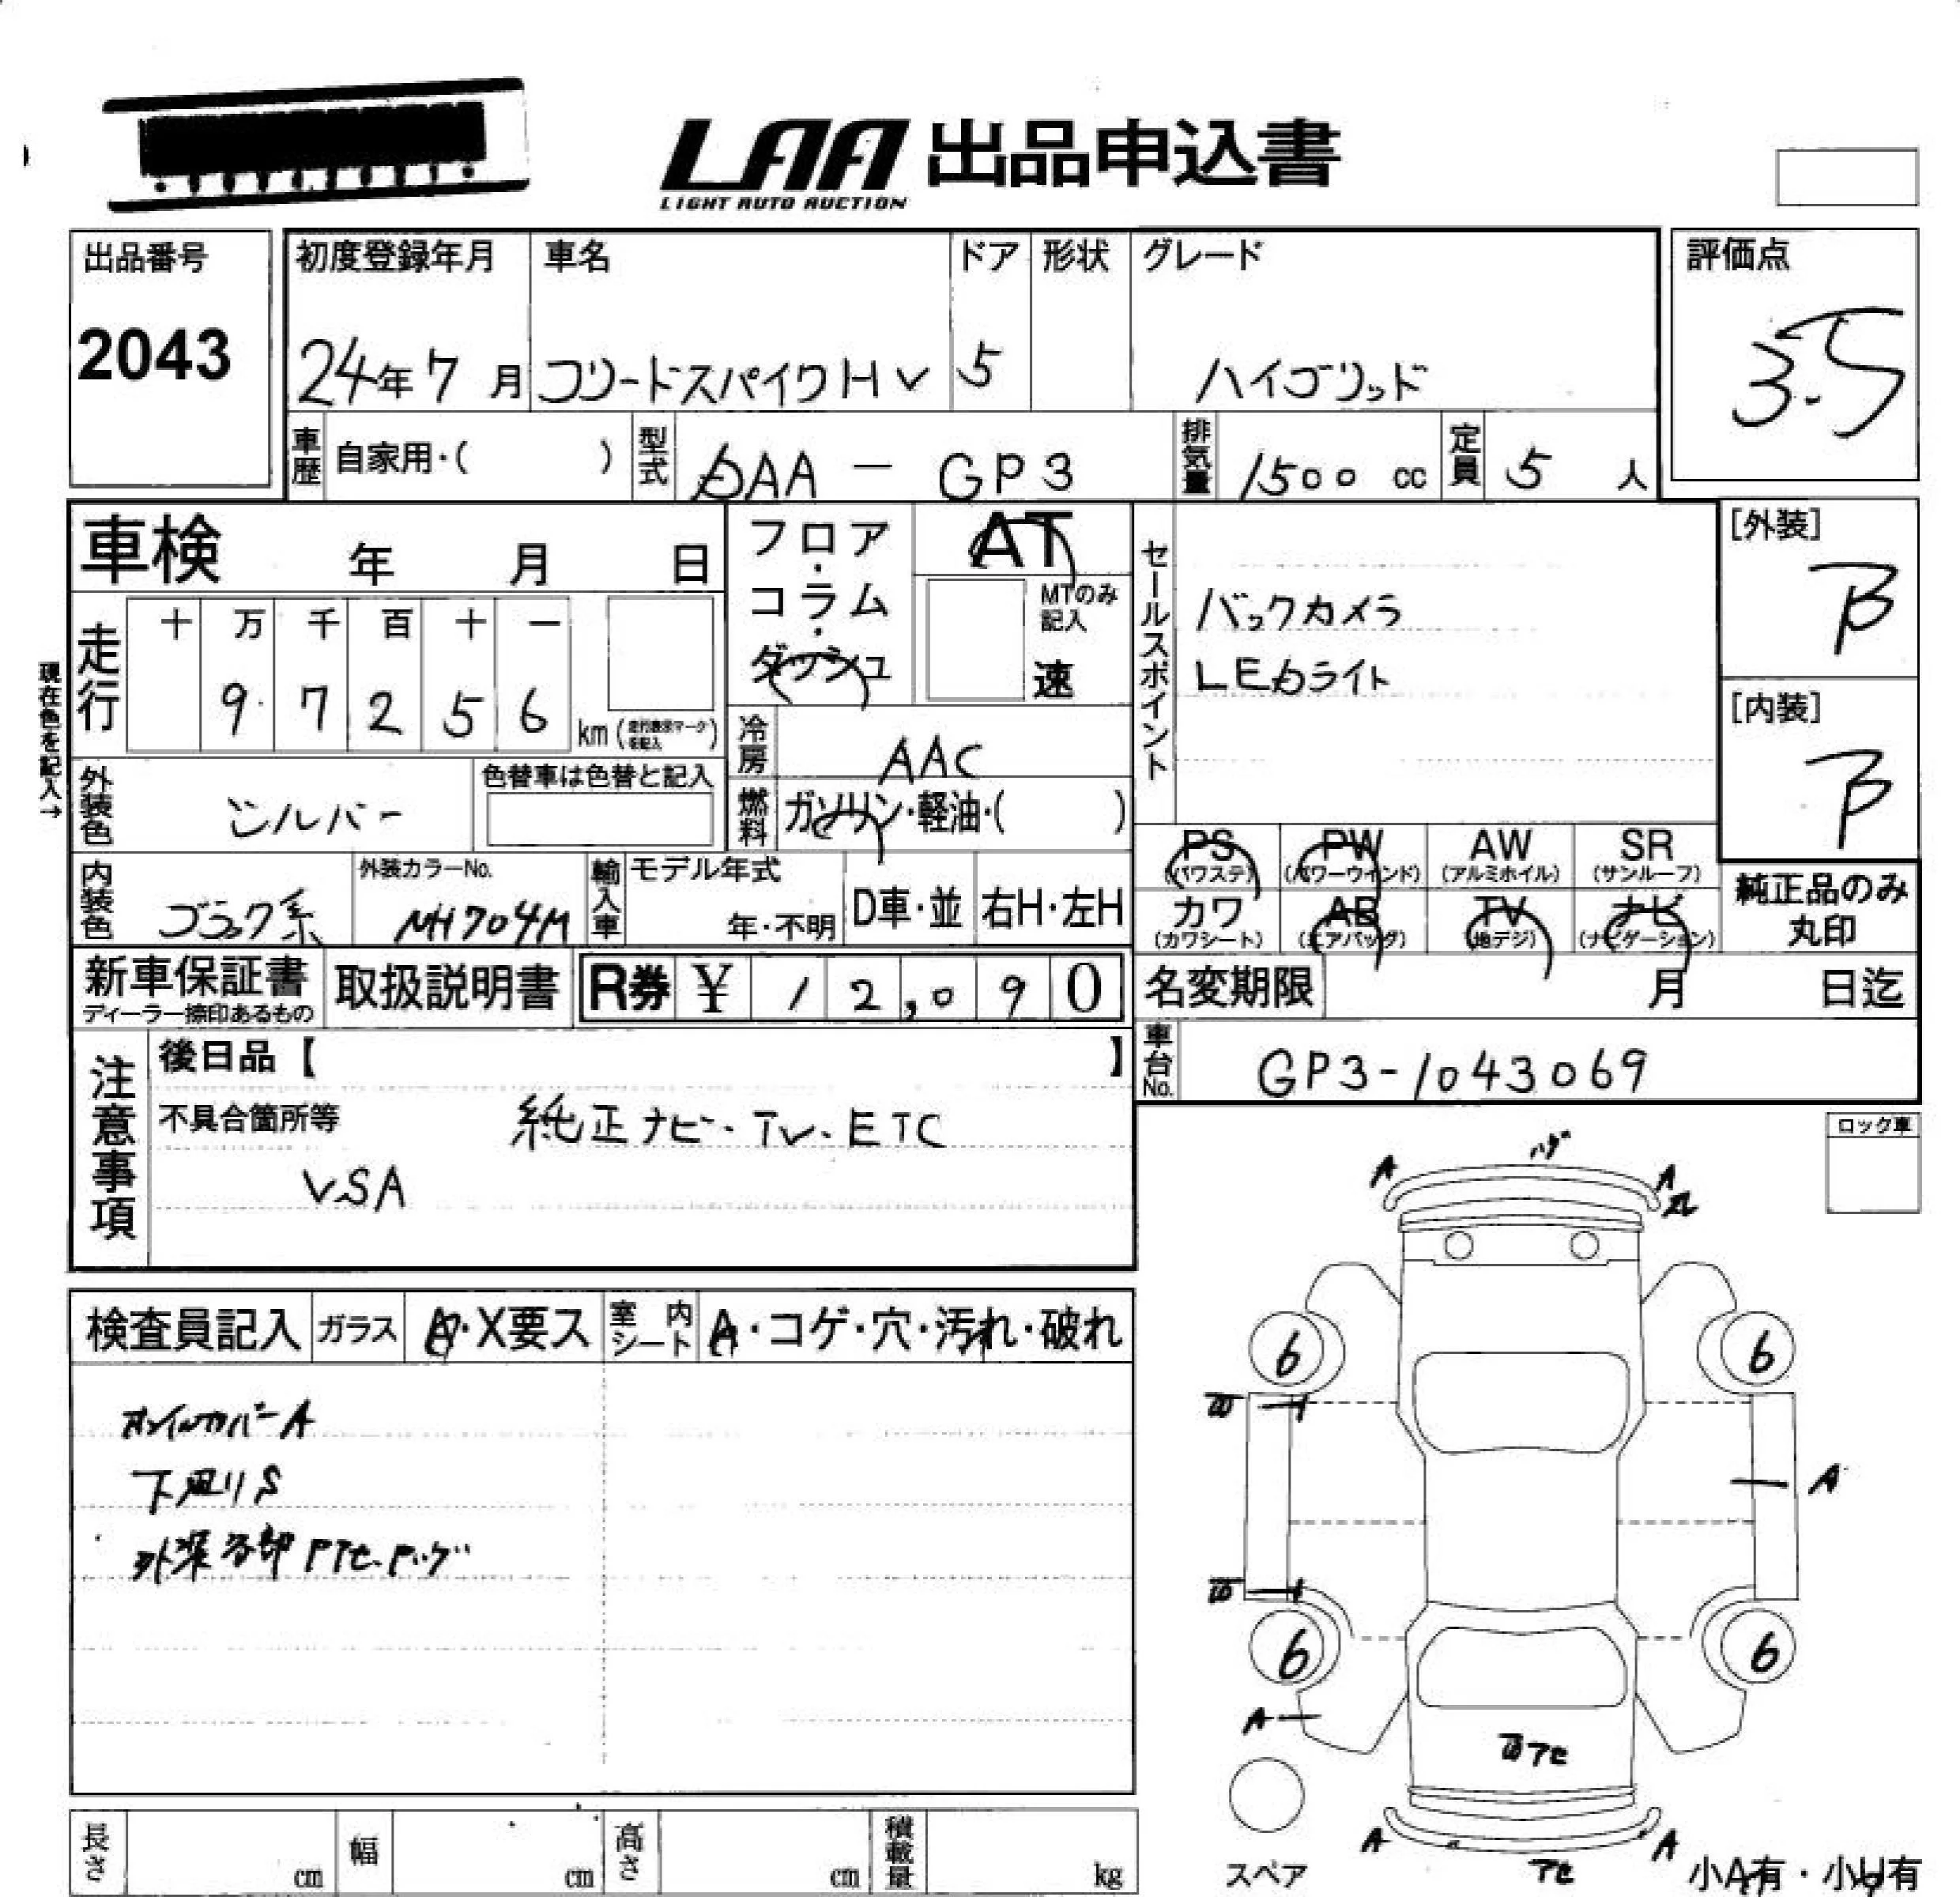 LAA 出品申込書
LIGHT AUTO AUCTION
出品番号
2043
初度登録年月
24年7月
車名
フリードスパイクHV
ドア
5
形状
グレード
ハイブリッド
評価点
3.5
車歴
自家用・( )
型式
DAA－GP3
排気量
1500 cc
定員
5 人
車検 年 月 日
フロア・コラム・ダッシュ
AT
MTのみ記入
速
セールスポイント
バックカメラ
LEDライト
[外装]
B
[内装]
B
現在色を記入→
走行
十 万 千 百 十 一
9 7 2 5 6 km
冷房
AAC
燃料
ガソリン・軽油・( )
外装色
シルバー
色替車は色替と記入
内装色
ブラック系
外装カラーNo.
NH704M
輸入車
モデル年式
年・不明
D車・並
右H・左H
PS (パワステ)
PW (パワーウインド)
AW (アルミホイル)
SR (サンルーフ)
カワ (カワシート)
AB (エアバッグ)
TV (地デジ)
ナビ (ナビゲーション)
純正品のみ丸印
新車保証書
ディーラー捺印あるもの
取扱説明書
R券 ¥ 12,090
名変期限 月 日迄
車台No.
GP3-1043069
注意事項
後日品【 】
不具合箇所等
純正ナビ・TV・ETC
VSA
ロック車
検査員記入
ガラス
A・X要ス
室内シート
A・コゲ・穴・汚れ・破れ
下廻りS
A
A
A
6
6
A
6
6
A
A
A
スペア
小A有・小U有
長さ cm
幅 cm
高さ cm
積載量 kg